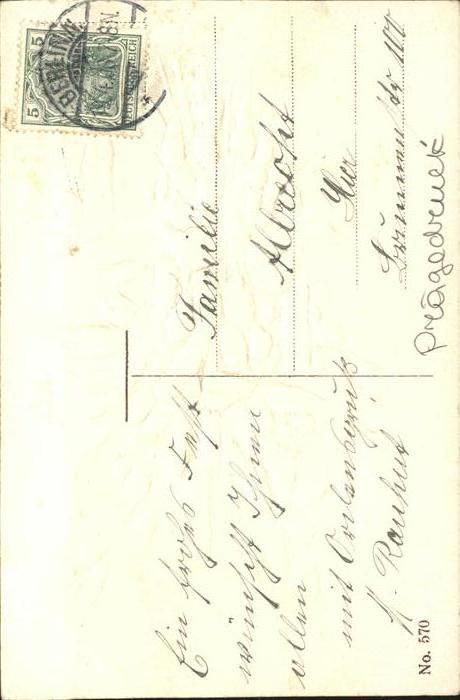 Ein frohes Fest
wünscht Ihnen
allen
mit Ordensgruß
H. Rauhut
Familie
Albrecht
Hier
Brunnenstr 111
Prägedruck
No. 570
BERLIN N.
8N.
5 5
DEUTSCHES REICH